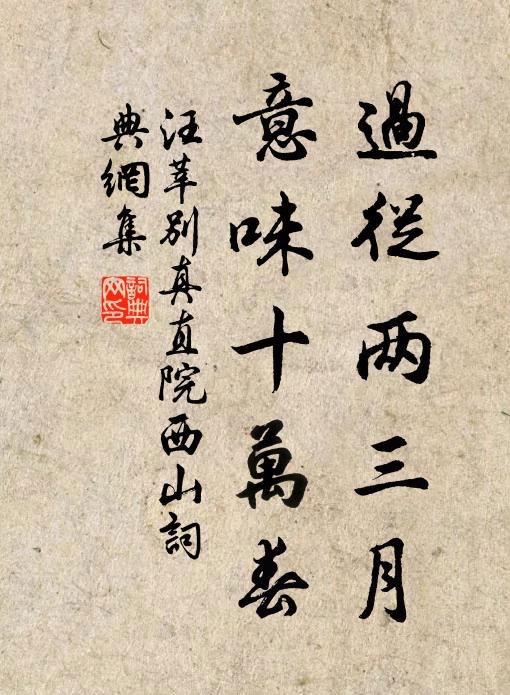 過從两三月
意味十萬春
汪莘别真直院西山詞
典網集
詞典
网印